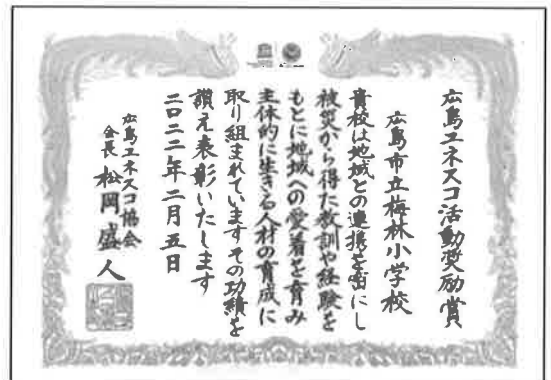 広島ユネスコ活動奨励賞
広島市立梅林小学校
貴校は地域との連携を密にし
被災から得た教訓や経験を
もとに地域への愛着を育み
主体的に生きる人材の育成に
取り組まれていますその功績を
讃え表彰いたします
二〇二二年二月五日
広島ユネスコ協会
会長 松岡盛人